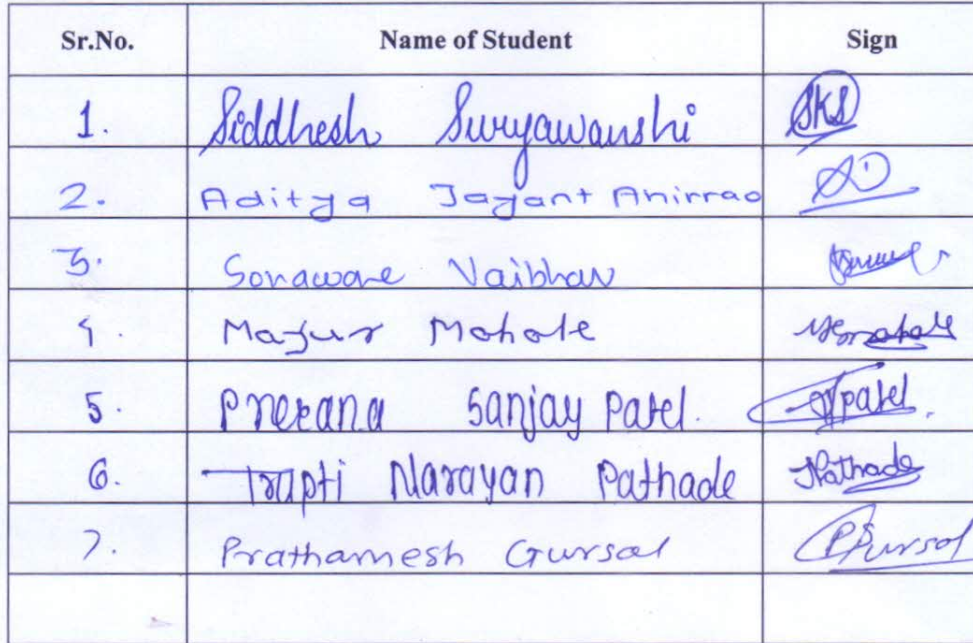 Sr.No. Name of Student Sign
1. Siddhesh Suryawanshi SKS
2. Aditya Jayant Ahirrao
3. Sonawane Vaibhav
4. Mayur Mohole
5. Prerana Sanjay Patel. Patel.
6. Trupti Narayan Pathade Pathade
7. Prathamesh Gursal Gursal